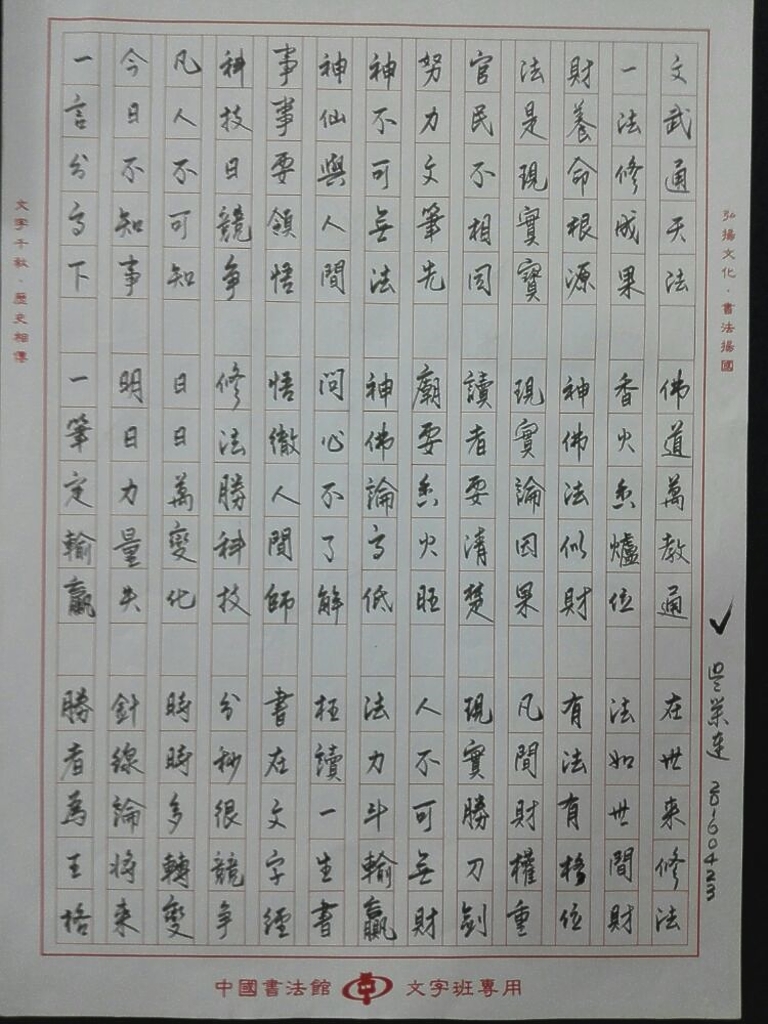 弘揚文化．書法揚國
文武通天法 佛道萬教通 在世来修法
一法修成果 香火香爐位 法如世間財
財養命根源 神佛法似財 有法有格位
法是現實寶 現實論因果 凡間財權重
官民不相同 讀者要清楚 現實勝刀劍
努力文筆先 廟要香火旺 人不可無財
神不可無法 神佛論高低 法力斗輸贏
神仙與人間 問心不了解 枉讀一生書
事事要領悟 悟徹人間師 書在文字經
科技日競争 修法勝科技 分秒很競争
凡人不可知 日日萬變化 時時多轉變
今日不知事 明日力量失 針線論将来
一言分高下 一筆定輸贏 勝者為王格
文字千秋．歷史相傳
20160423
中國書法館 文字班專用